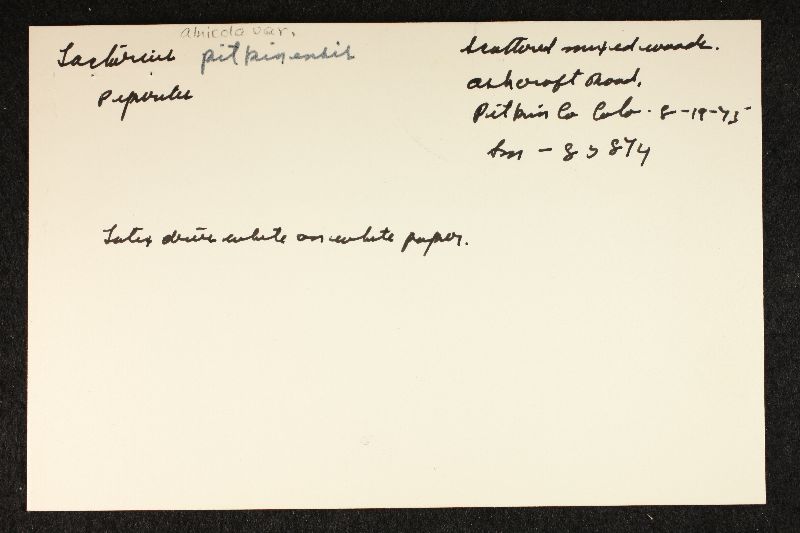 alnicola var.
Lactarius pitkinensis
Piperites
scattered mixed woods.
Ashcroft Road.
Pitkin Co Colo - 8-19-75
Sm - 85874
Latex dries white on white paper.